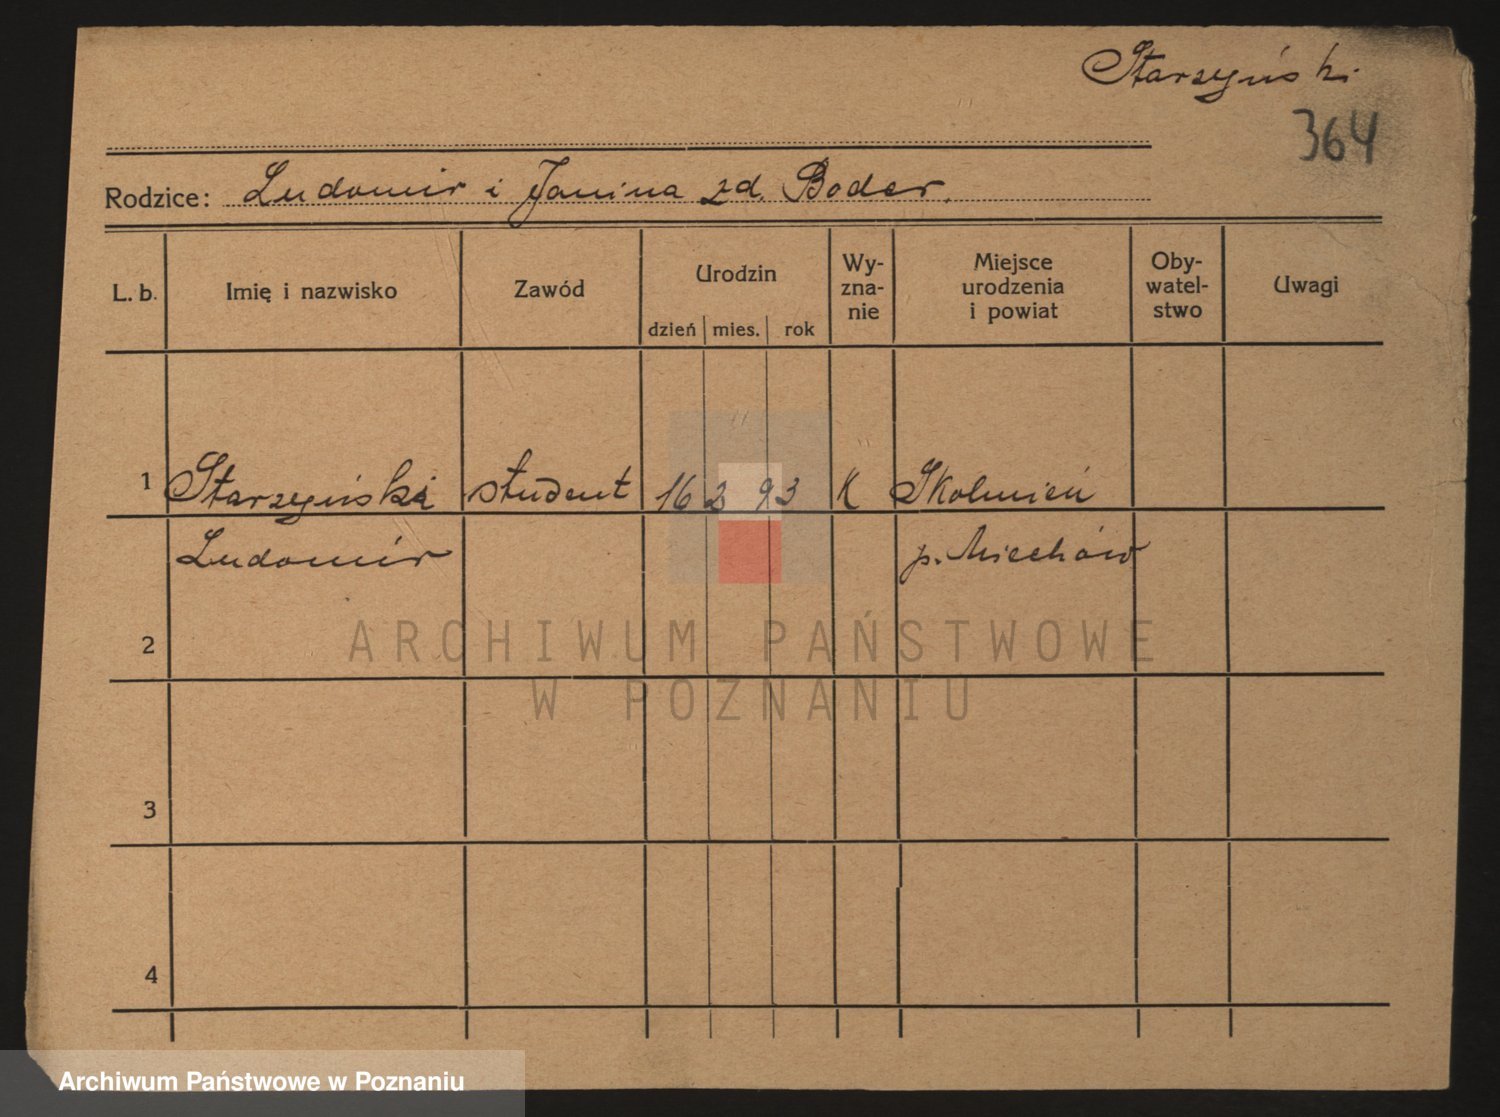 Starzyński
364
Rodzice: Ludomir i Janina zd. Boder.
L. b. Imię i nazwisko Zawód Urodzin dzień mies. rok Wy-zna-nie Miejsce urodzenia i powiat Oby-watel-stwo Uwagi
1 Starzyński student 16 2 93 K Skolmień
Ludomir p. Miechów
2
ARCHIWUM PAŃSTWOWE
W POZNANIU
3
4
Archiwum Państwowe w Poznaniu